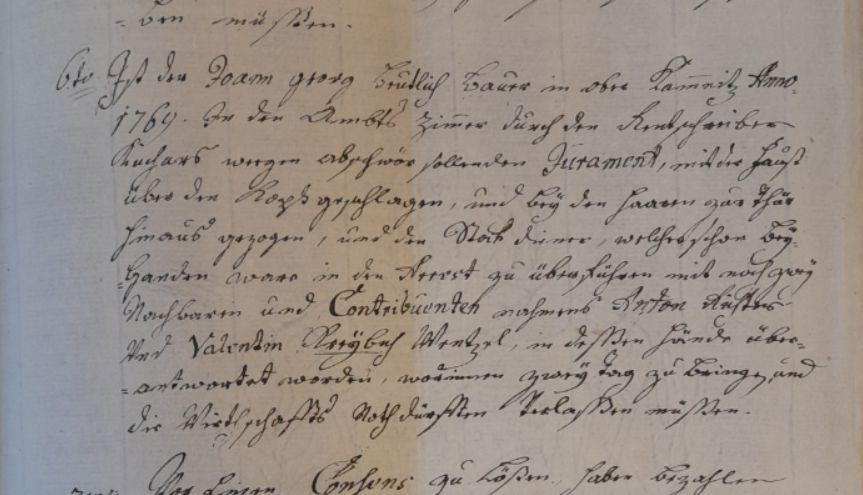 -ben müssen.
6to Ist der Joann georg Beutlich Bauer in ober Kamnitz Anno
1769. In den Ambts Zimer durch den Rentschreiber
Kuchars wegen abschwör sollenden Jurament, mit der Faust
über den Kopf geschlagen, und bey den Haaren zur Thür
hinaus gezogen, und den Stok diener, welcher schon bey-
-handen ware in den Arrest zu überführen mit noch zwey
Nachbaren und Contribuenten nahmens Anton
und Valentin Kreybich Wentzel, in dessen Hände über-
-antwortet worden, worinnen zwey Tag zu bringen, und
die Wirthschaffts Nothdürfften verlassen müssen.
Consens zu Lößen, haben bezahlen